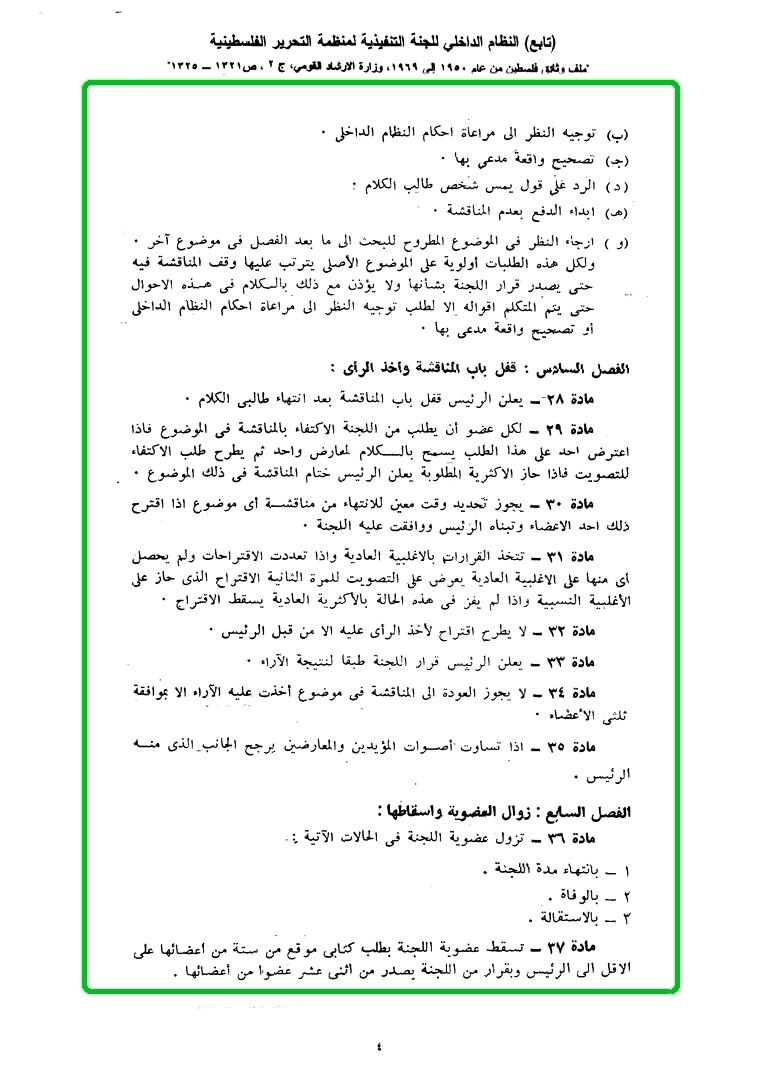 (تابع) النظام الداخلي للجنة التنفيذية لمنظمة التحرير الفلسطينية
"ملف وثائق فلسطين من عام ١٩٥٠ إلى ١٩٦٩، وزارة الارشاد القومي، ج ٢ ، ص ١٣٢١ ــ ١٣٢٥"
(ب) توجيه النظر الى مراعاة احكام النظام الداخلى ٠
(جـ) تصحيح واقعة مدعى بها ٠
(د) الرد على قول يمس شخص طالب الكلام ٠
(هـ) ابداء الدفع بعدم المناقشة ٠
(و) ارجاء النظر فى الموضوع المطروح للبحث الى ما بعد الفصل فى موضوع آخر ٠
ولكل هذه الطلبات أولوية على الموضوع الأصلى يترتب عليها وقف المناقشة فيه
حتى يصدر قرار اللجنة بشأنها ولا يؤذن مع ذلك بالـكلام فى هـذه الاحوال
حتى يتم المتكلم اقواله الا لطلب توجيه النظر الى مراعاة احكام النظام الداخلى
أو تصحيح واقعة مدعى بها ٠
الفصل السادس : قفل باب المناقشة وأخذ الرأى :
مادة ٢٨ ــ يعلن الرئيس قفل باب المناقشة بعد انتهاء طالبى الكلام ٠
مادة ٢٩ ــ لكل عضو أن يطلب من اللجنة الاكتفاء بالمناقشة فى الموضوع فاذا
اعترض احد على هذا الطلب يسمح بالــكلام لمعارض واحد ثم يطرح طلب الاكتفاء
للتصويت فاذا حاز الاكثرية المطلوبة يعلن الرئيس ختام المناقشة فى ذلك الموضوع ٠
مادة ٣٠ ــ يجوز تحديد وقت معين للانتهاء من مناقشـة أى موضوع اذا اقترح
ذلك احد الاعضاء وتبناه الرئيس ووافقت عليه اللجنة ٠
مادة ٣١ ــ تتخذ القرارات بالاغلبية العادية واذا تعددت الاقتراحات ولم يحصل
أى منها على الاغلبية العادية يعرض على التصويت للمرة الثانية الاقتراح الذى حاز على
الأغلبية النسبية واذا لم يفز فى هذه الحالة بالأكثرية العادية يسقط الاقتراح ٠
مادة ٣٢ ــ لا يطرح اقتراح لأخذ الرأى عليه الا من قبل الرئيس ٠
مادة ٣٣ ــ يعلن الرئيس قرار اللجنة طبقا لنتيجة الآراء ٠
مادة ٣٤ ــ لا يجوز العودة الى المناقشة فى موضوع أخذت عليه الآراء الا بموافقة
ثلثى الأعضاء ٠
مادة ٣٥ ــ اذا تساوت أصـوات المؤيدين والمعارضين يرجح الجانب الذى منـه
الرئيس ٠
الفصل السابع : زوال العضوية واسقاطها :
مادة ٣٦ ــ تزول عضوية اللجنة فى الحالات الآتية :
١ ــ بانتهاء مدة اللجنة ٠
٢ ــ بالوفاة ٠
٣ ــ بالاستقالة ٠
مادة ٣٧ ــ تسقط عضوية اللجنة بطلب كتابى موقع من ستة من أعضائها على
الاقل الى الرئيس وبقرار من اللجنة يصدر من اثنى عشر عضوا من أعضائها ٠
٤